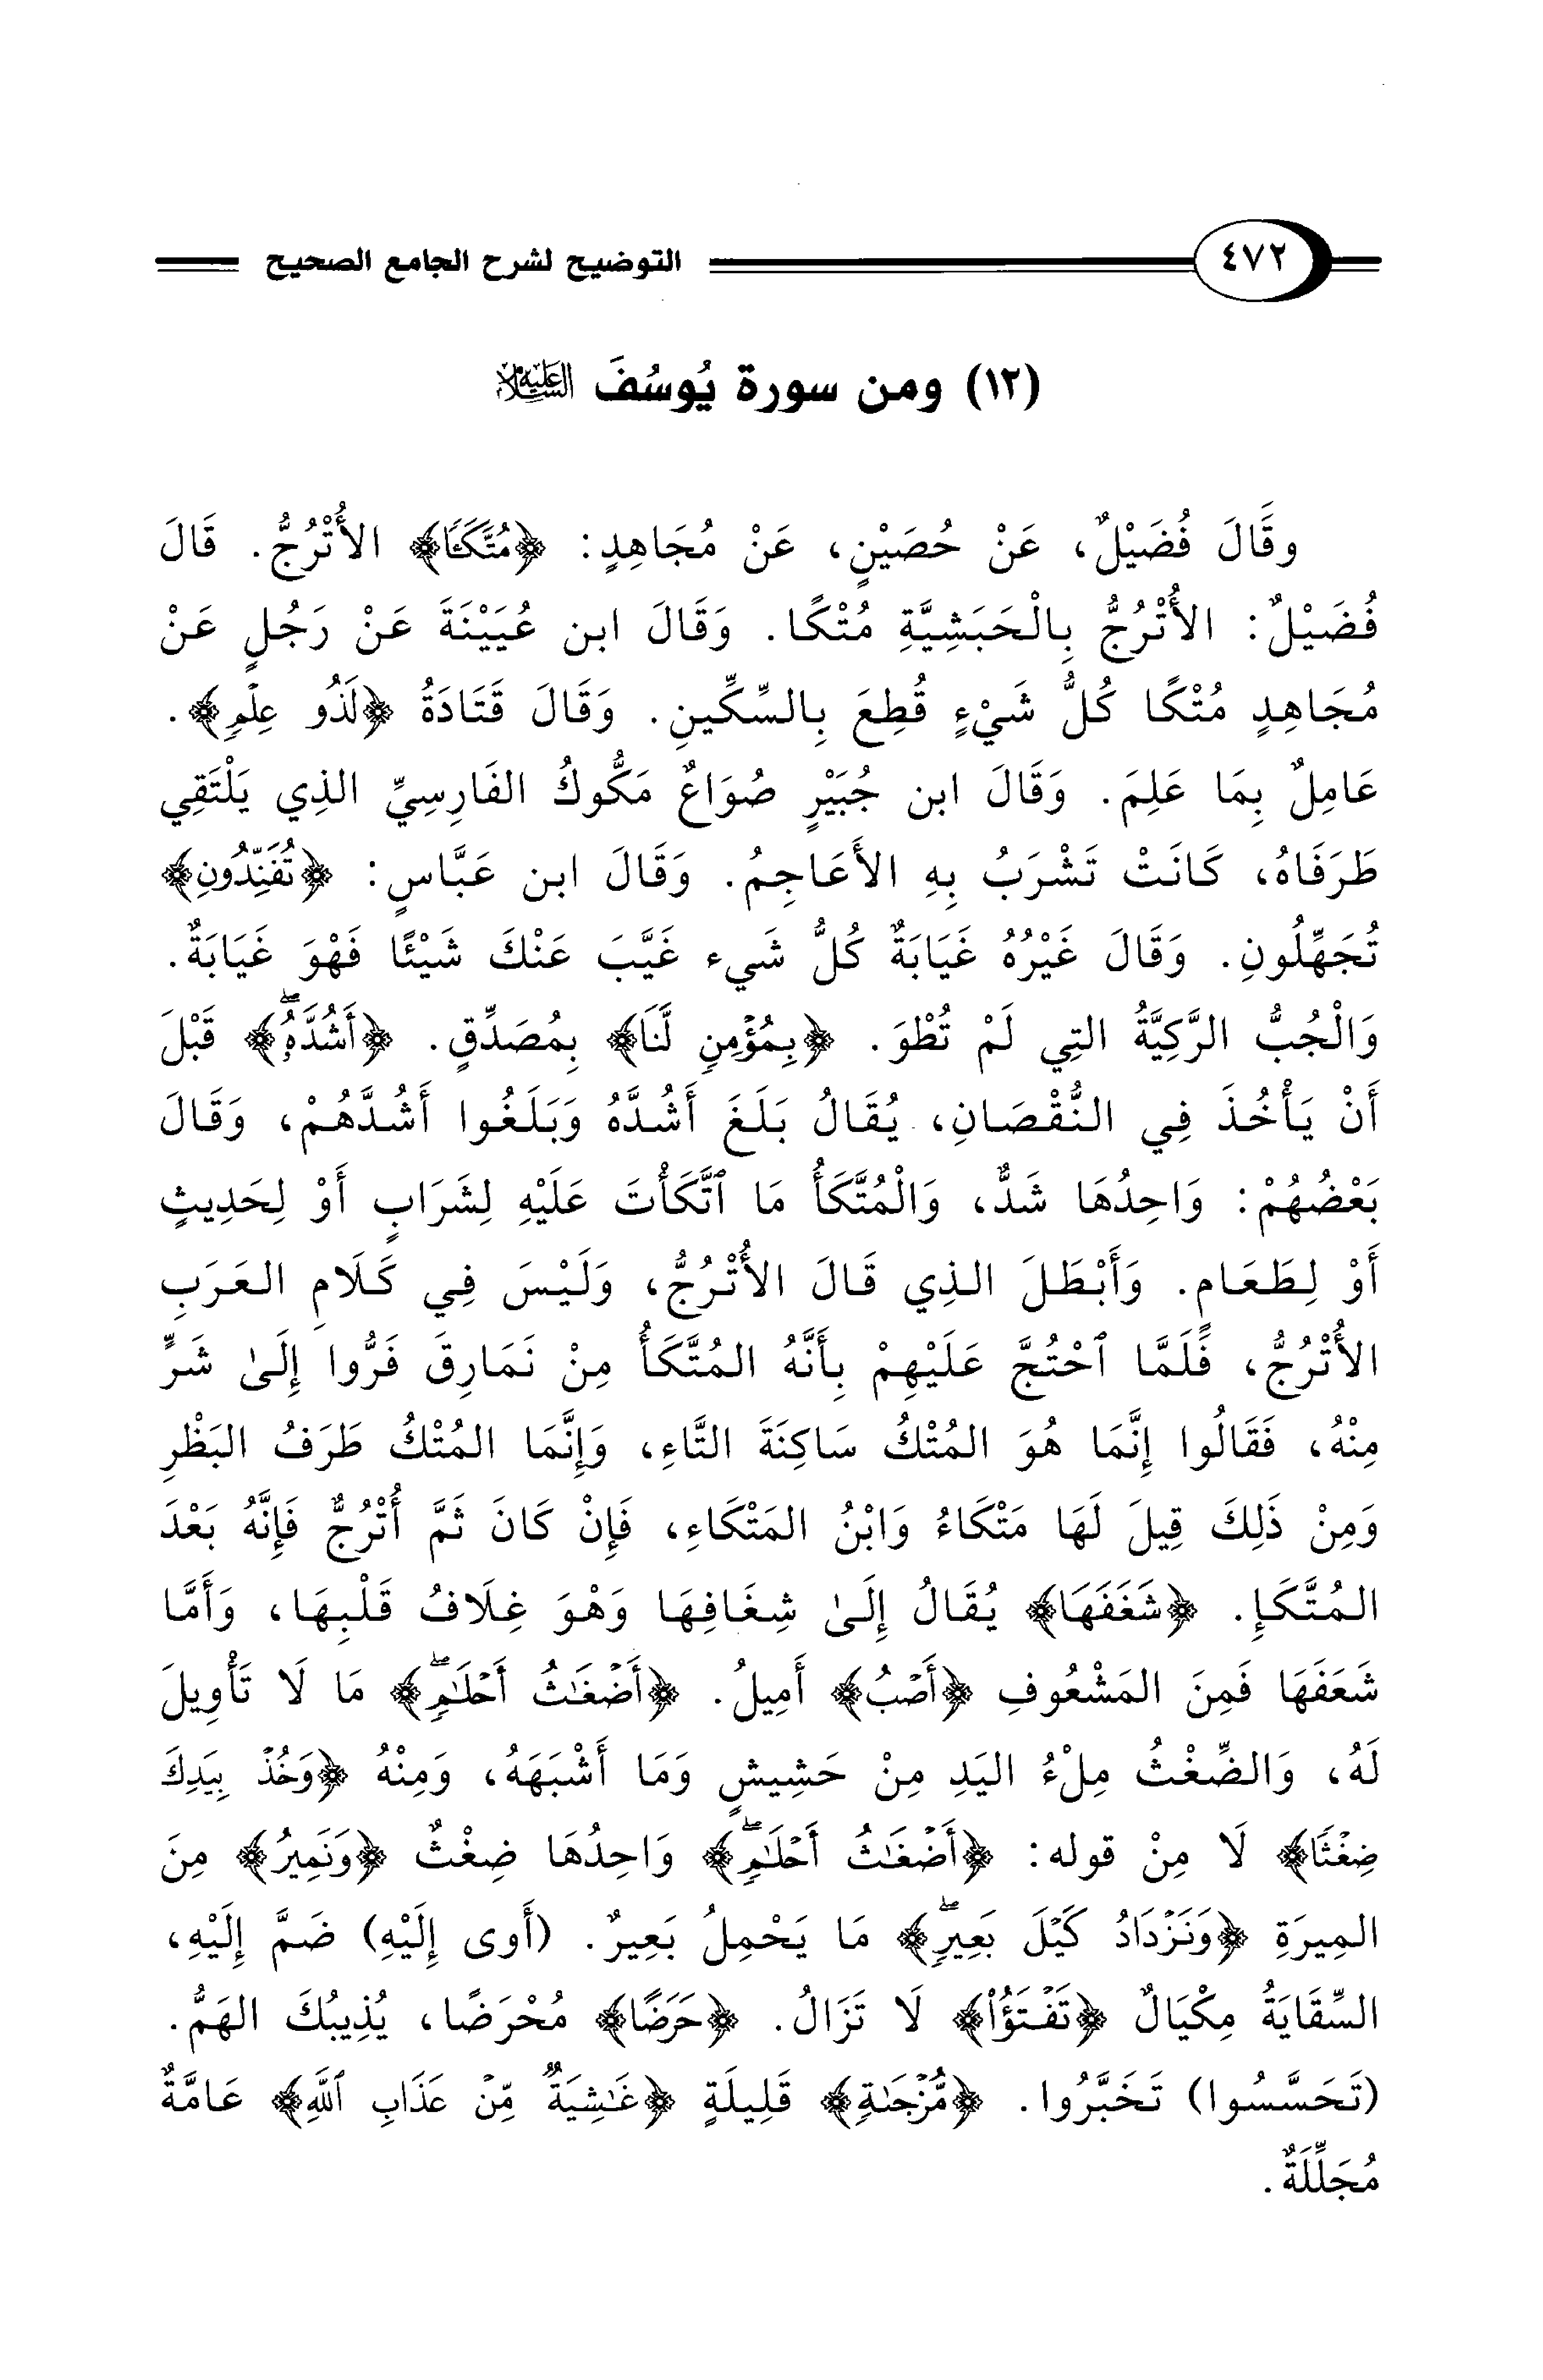 ٤٧٢ التوضيح لشرح الجامع الصحيح
(١٢) ومن سورة يُوسُفَ عليه السلام
وقَالَ فُضَيْلٌ، عَنْ حُصَيْنٍ، عَنْ مُجَاهِدٍ: ﴿مُتَّكَـًٔا﴾ الأُتْرُجُّ. قَالَ
فُضَيْلٌ: الأُتْرُجُّ بِالْحَبَشِيَّةِ مُتْكًا. وَقَالَ ابن عُيَيْنَةَ عَنْ رَجُلٍ عَنْ
مُجَاهِدٍ مُتْكًا كُلُّ شَيْءٍ قُطِعَ بِالسِّكِّينِ. وَقَالَ قَتَادَةُ ﴿لَذُو عِلْمٍ﴾.
عَامِلٌ بِمَا عَلِمَ. وَقَالَ ابن جُبَيْرٍ صُوَاعٌ مَكُّوكُ الفَارِسِيِّ الذِي يَلْتَقِي
طَرَفَاهُ، كَانَتْ تَشْرَبُ بِهِ الأَعَاجِمُ. وَقَالَ ابن عَبَّاسٍ: ﴿تُفَنِّدُونِ﴾
تُجَهِّلُونِ. وَقَالَ غَيْرُهُ غَيَابَةٌ كُلُّ شَيء غَيَّبَ عَنْكَ شَيْئًا فَهْوَ غَيَابَةٌ.
وَالْجُبُّ الرَّكِيَّةُ التِي لَمْ تُطْوَ. ﴿بِمُؤْمِنٍ لَّنَا﴾ بِمُصَدِّقٍ. ﴿أَشُدَّهُۥۖ﴾ قَبْلَ
أَنْ يَأْخُذَ فِي النُّقْصَانِ، يُقَالُ بَلَغَ أَشُدَّهُ وَبَلَغُوا أَشُدَّهُمْ، وَقَالَ
بَعْضُهُمْ: وَاحِدُهَا شَدٌّ، وَالْمُتَّكَأُ مَا ٱتَّكَأْتَ عَلَيْهِ لِشَرَابٍ أَوْ لِحَدِيثٍ
أَوْ لِطَعَامٍ. وَأَبْطَلَ الذِي قَالَ الأُتْرُجُّ، وَلَيْسَ فِي كَلَامِ العَرَبِ
الأُتْرُجُّ، فَلَمَّا ٱحْتُجَّ عَلَيْهِمْ بِأَنَّهُ المُتَّكَأُ مِنْ نَمَارِقَ فَرُّوا إِلَىٰ شَرٍّ
مِنْهُ، فَقَالُوا إِنَّمَا هُوَ المُتْكُ سَاكِنَةَ التَّاءِ، وَإِنَّمَا المُتْكُ طَرَفُ البَظْرِ
وَمِنْ ذَلِكَ قِيلَ لَهَا مَتْكَاءُ وَابْنُ المَتْكَاءِ، فَإِنْ كَانَ ثَمَّ أُتْرُجٌّ فَإِنَّهُ بَعْدَ
المُتَّكَإِ. ﴿شَغَفَهَا﴾ يُقَالُ إِلَىٰ شِغَافِهَا وَهْوَ غِلَافُ قَلْبِهَا، وَأَمَّا
شَعَفَهَا فَمِنَ المَشْعُوفِ ﴿أَصْبُ﴾ أَمِيلُ. ﴿أَضْغَٰثُ أَحْلَٰمٍۖ﴾ مَا لَا تَأْوِيلَ
لَهُ، وَالضِّغْثُ مِلْءُ اليَدِ مِنْ حَشِيشٍ وَمَا أَشْبَهَهُ، وَمِنْهُ ﴿وَخُذْ بِيَدِكَ
ضِغْثًا﴾ لَا مِنْ قوله: ﴿أَضْغَٰثُ أَحْلَٰمٍۖ﴾ وَاحِدُهَا ضِغْثٌ ﴿وَنَمِيرُ﴾ مِنَ
المِيرَةِ ﴿وَنَزْدَادُ كَيْلَ بَعِيرٍۖ﴾ مَا يَحْمِلُ بَعِيرٌ. (أَوى إِلَيْهِ) ضَمَّ إِلَيْهِ،
السِّقَايَةُ مِكْيَالٌ ﴿تَفْتَؤُا۟﴾ لَا تَزَالُ. ﴿حَرَضًا﴾ مُحْرَضًا، يُذِيبُكَ الهَمُّ.
(تَحَسَّسُوا) تَخَبَّرُوا. ﴿مُّزْجَىٰةٍ﴾ قَلِيلَةٍ ﴿غَٰشِيَةٌ مِّنْ عَذَابِ ٱللَّهِ﴾ عَامَّةٌ
مُجَلِّلَةٌ.